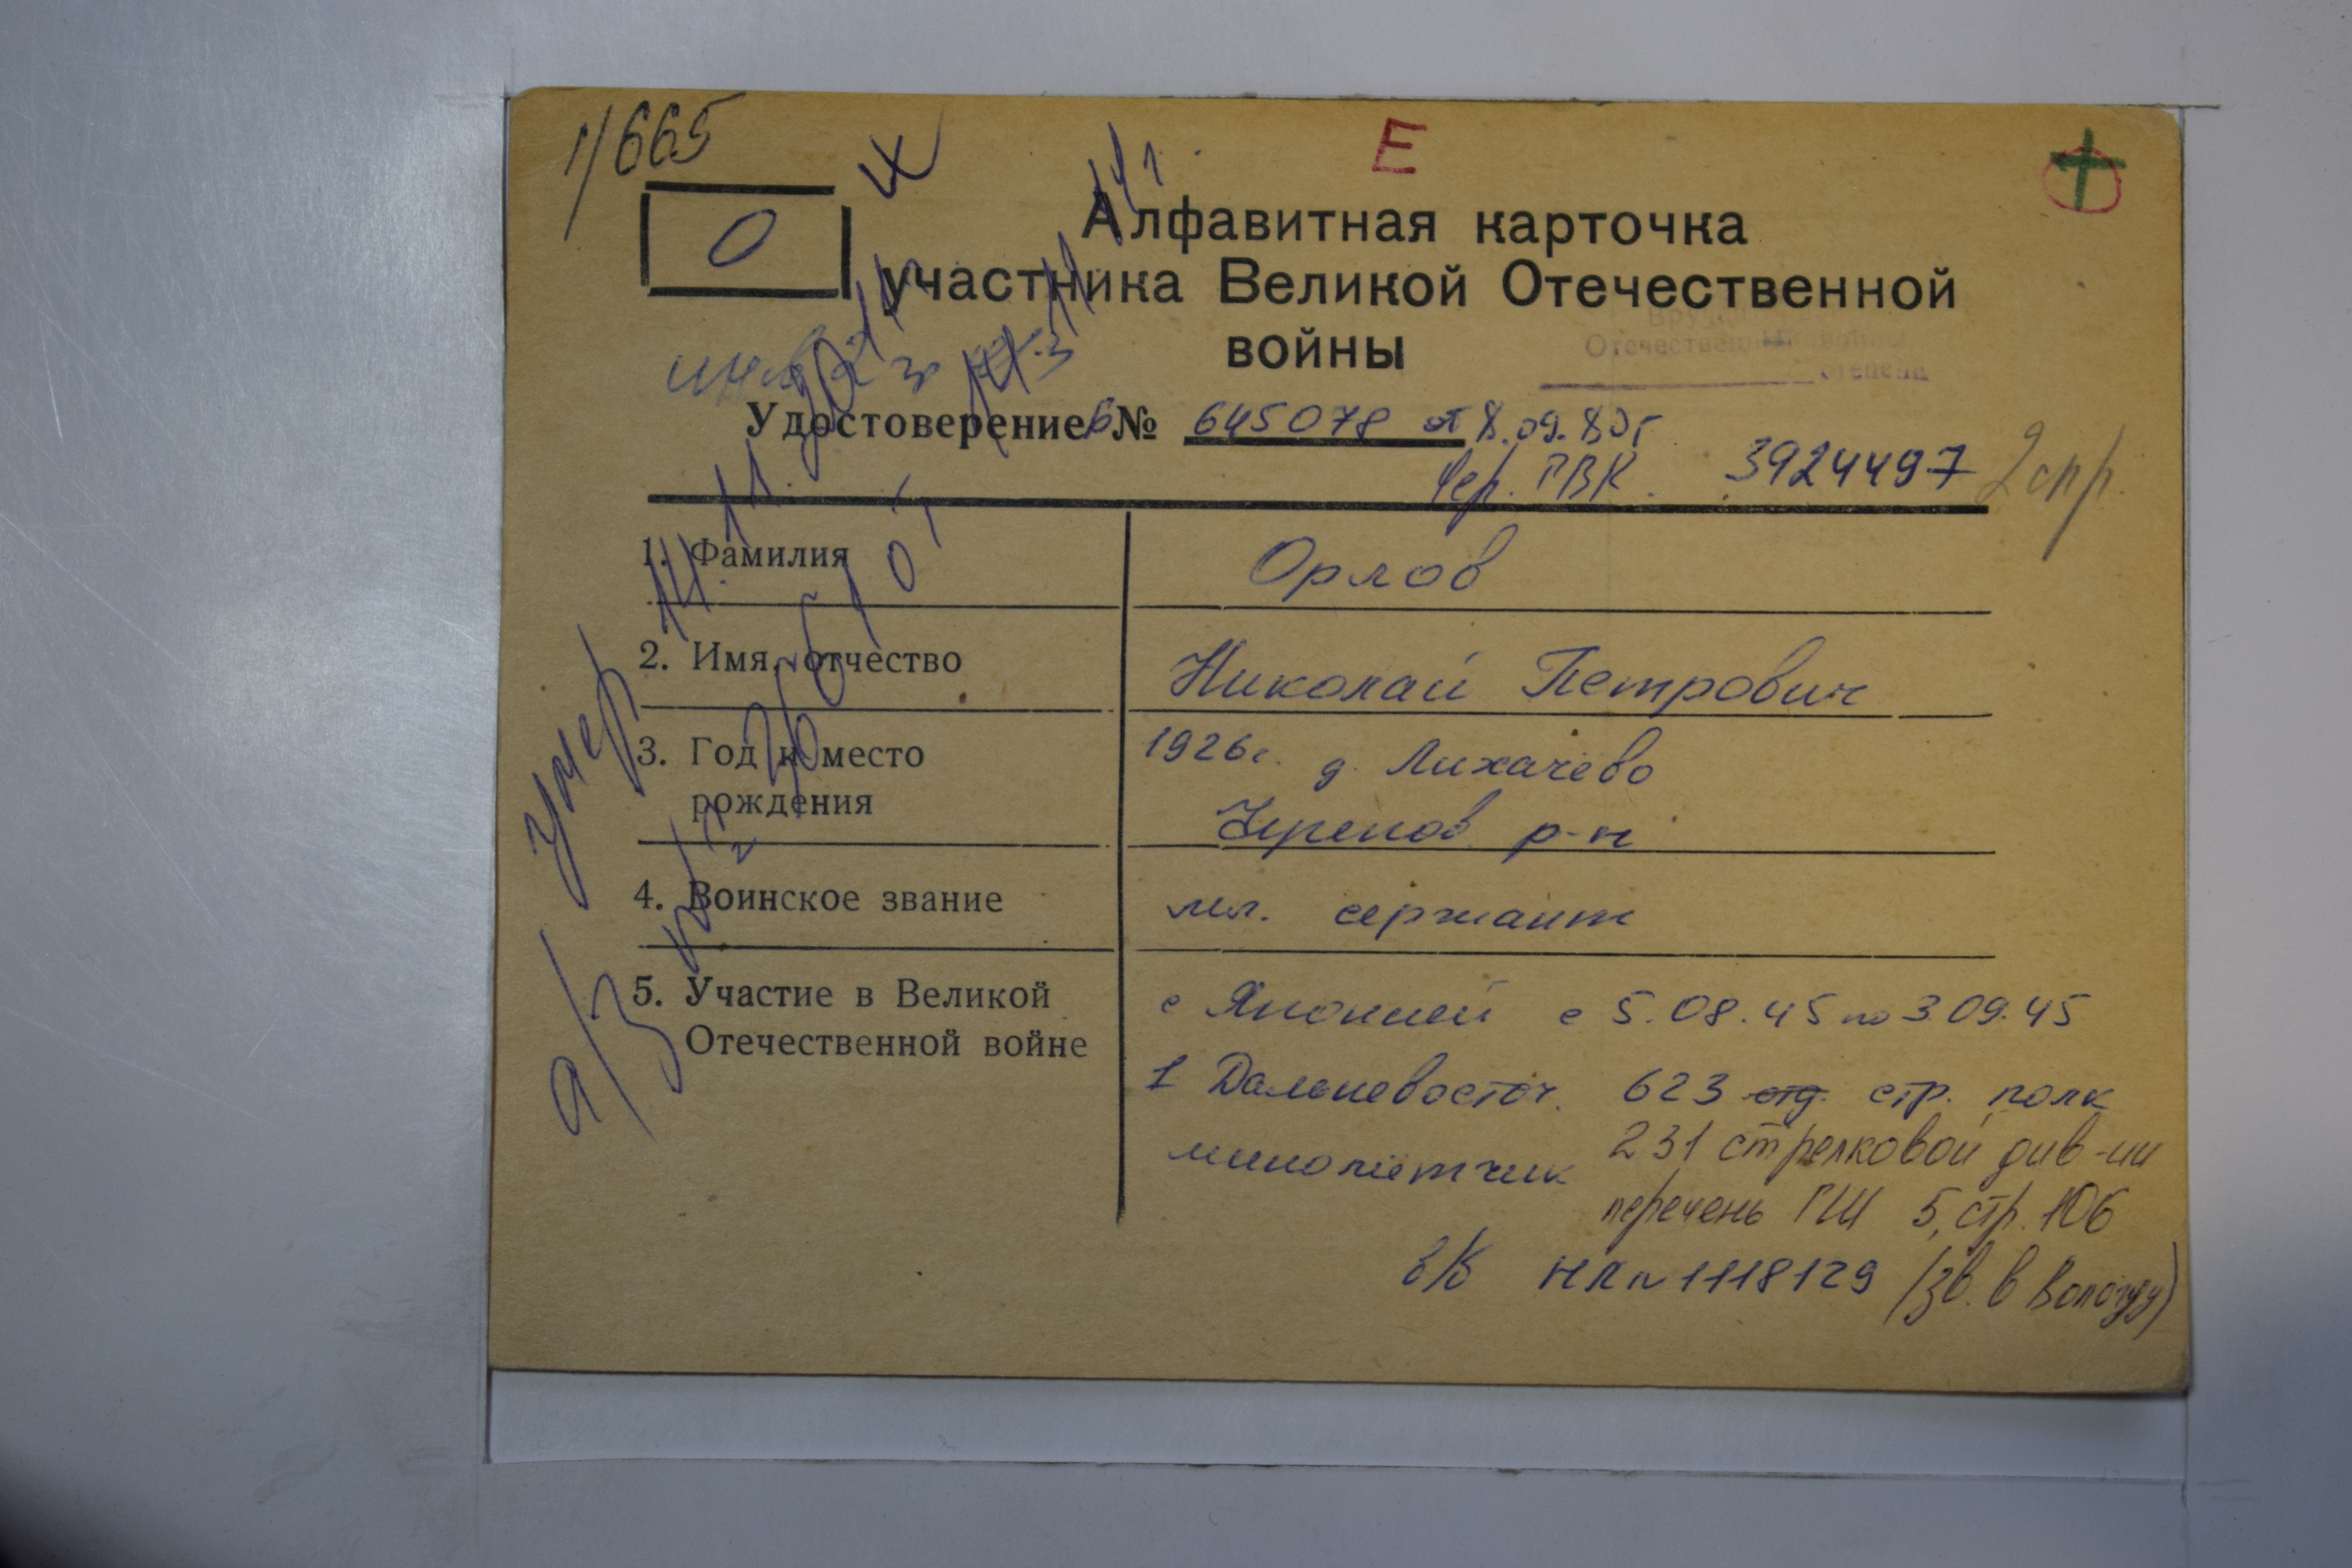 1/665
Е
О
Алфавитная карточка
участника Великой Отечественной
войны
Отечественной войны
степени
Удостоверение Б № 645078 от 8.09.80г
Чер. ГВК. 3924497 2 спр.
1. Фамилия Орлов
2. Имя, отчество Николай Петрович
3. Год и место рождения 1926г. д. Лихачево
Череповец. р-н
4. Воинское звание мл. сержант
5. Участие в Великой Отечественной войне с Японией с 5.08.45 по 3.09.45
1 Дальневосточ. 623 отд. стр. полк
минометчик 231 стрелковой див-ии
перечень ГШ 5, стр. 106
в/б НК № 1118129 (зв. в Вологду)
умер 14.11.
а/з